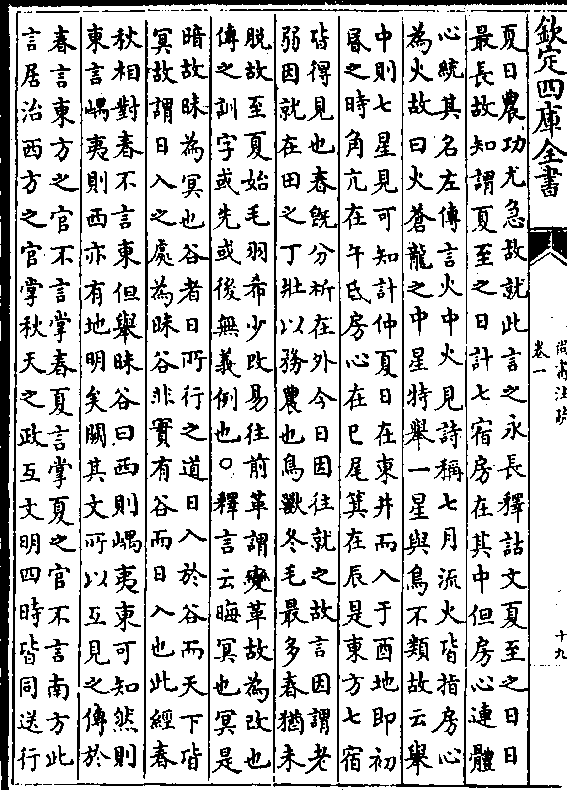 欽定四庫全書
尚書注疏
卷一
十九
夏日農功尤急故就此言之永長釋詁文夏至之日日
最長故知謂夏至之日計七宿房在其中但房心連體
心統其名左傳言火中火見詩稱七月流火皆指房心
為火故曰火蒼龍之中星特舉一星與鳥不類故云舉
中則七星見可知計仲夏日在東井而入于酉地即初
昏之時角亢在午氐房心在巳尾箕在辰是東方七宿
皆得見也春既分析在外今日因往就之故言因謂老
弱因就在田之丁壯以務農也鳥獸冬毛最多春猶未
脫故至夏始毛羽希少改易往前革謂變革故為改也
傳之訓字或先或後無義例也○釋言云晦冥也冥是
暗故昧為冥也谷者日所行之道日入於谷而天下皆
冥故謂日入之處為昧谷非實有谷而日入也此經春
秋相對春不言東但舉昧谷曰西則嵎夷東可知然則
東言嵎夷則西亦有地明矣闕其文所以互見之傳於
春言東方之官不言掌春夏言掌夏之官不言南方此
言居治西方之官掌秋天之政互文明四時皆同送行